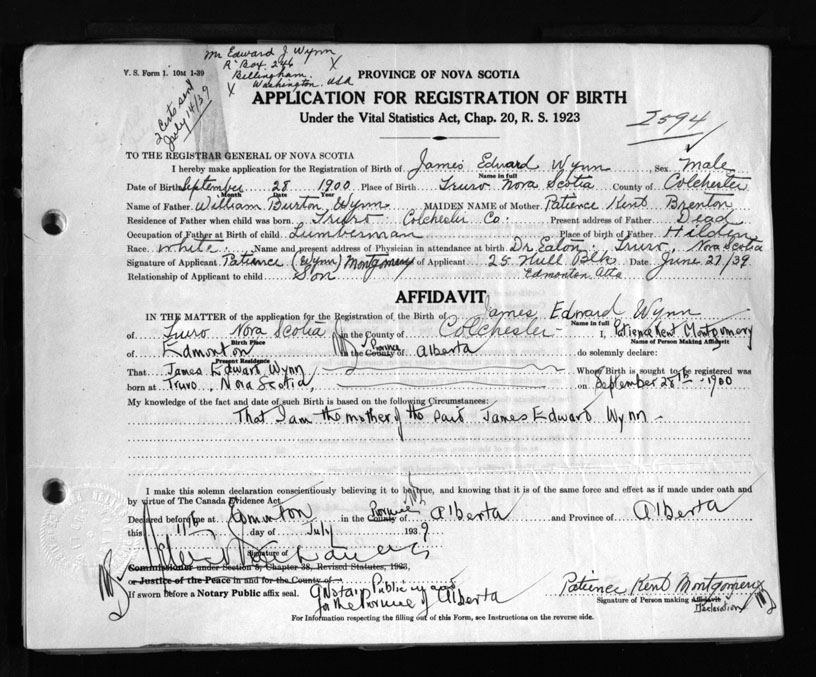 Mr Edward J Wynn
R' Box. 246
Bellingham.
Washington. USA
V. S. Form 1. 10M 1-39
2 Certs sent
July 14/39
PROVINCE OF NOVA SCOTIA
APPLICATION FOR REGISTRATION OF BIRTH
Under the Vital Statistics Act, Chap. 20, R. S. 1923
2594
TO THE REGISTRAR GENERAL OF NOVA SCOTIA
I hereby make application for the Registration of Birth of James Edward Wynn Sex Male
Name in full
Date of Birth September 28 1900 Place of Birth Truro Nova Scotia County of Colchester
Month Date Year
Name of Father William Burton Wynn MAIDEN NAME of Mother Patience Kent Brenton
Residence of Father when child was born Truro Colchester Co. Present address of Father Dead
Occupation of Father at Birth of child Lumberman Place of birth of Father Hilden
Race White Name and present address of Physician in attendance at birth Dr. Eaton Truro, Nova Scotia
Signature of Applicant Patience (Wynn) Montgomery of Applicant 25 Hull Blk Date June 27/39
Relationship of Applicant to child Son Edmonton Alta
AFFIDAVIT
IN THE MATTER of the application for the Registration of the Birth of James Edward Wynn
Name in full
of Truro Nova Scotia in the County of Colchester I, Patience Kent Montgomery
Birth Place Name of Person Making Affidavit
of Edmonton in the County of Province Alberta do solemnly declare:
Present Residence
That James Edward Wynn Whose Birth is sought to be registered was
born at Truro, Nova Scotia, on September 28th 1900
My knowledge of the fact and date of such Birth is based on the following Circumstances:
That I am the mother of the said James Edward Wynn
I make this solemn declaration conscientiously believing it to be true, and knowing that it is of the same force and effect as if made under oath and
by virtue of The Canada Evidence Act.
Declared before me at Edmonton in the County of Province Alberta and Province of Alberta
this 11th day of July 1939
Signature of
Commissioner under Section 8, Chapter 38, Revised Statutes, 1923,
or Justice of the Peace in and for the County of
If sworn before a Notary Public affix seal. a Notary Public in and
for the Province of Alberta
Patience Kent Montgomery
Signature of Person making Affidavit
Declaration
For Information respecting the filling out of this Form, see Instructions on the reverse side.